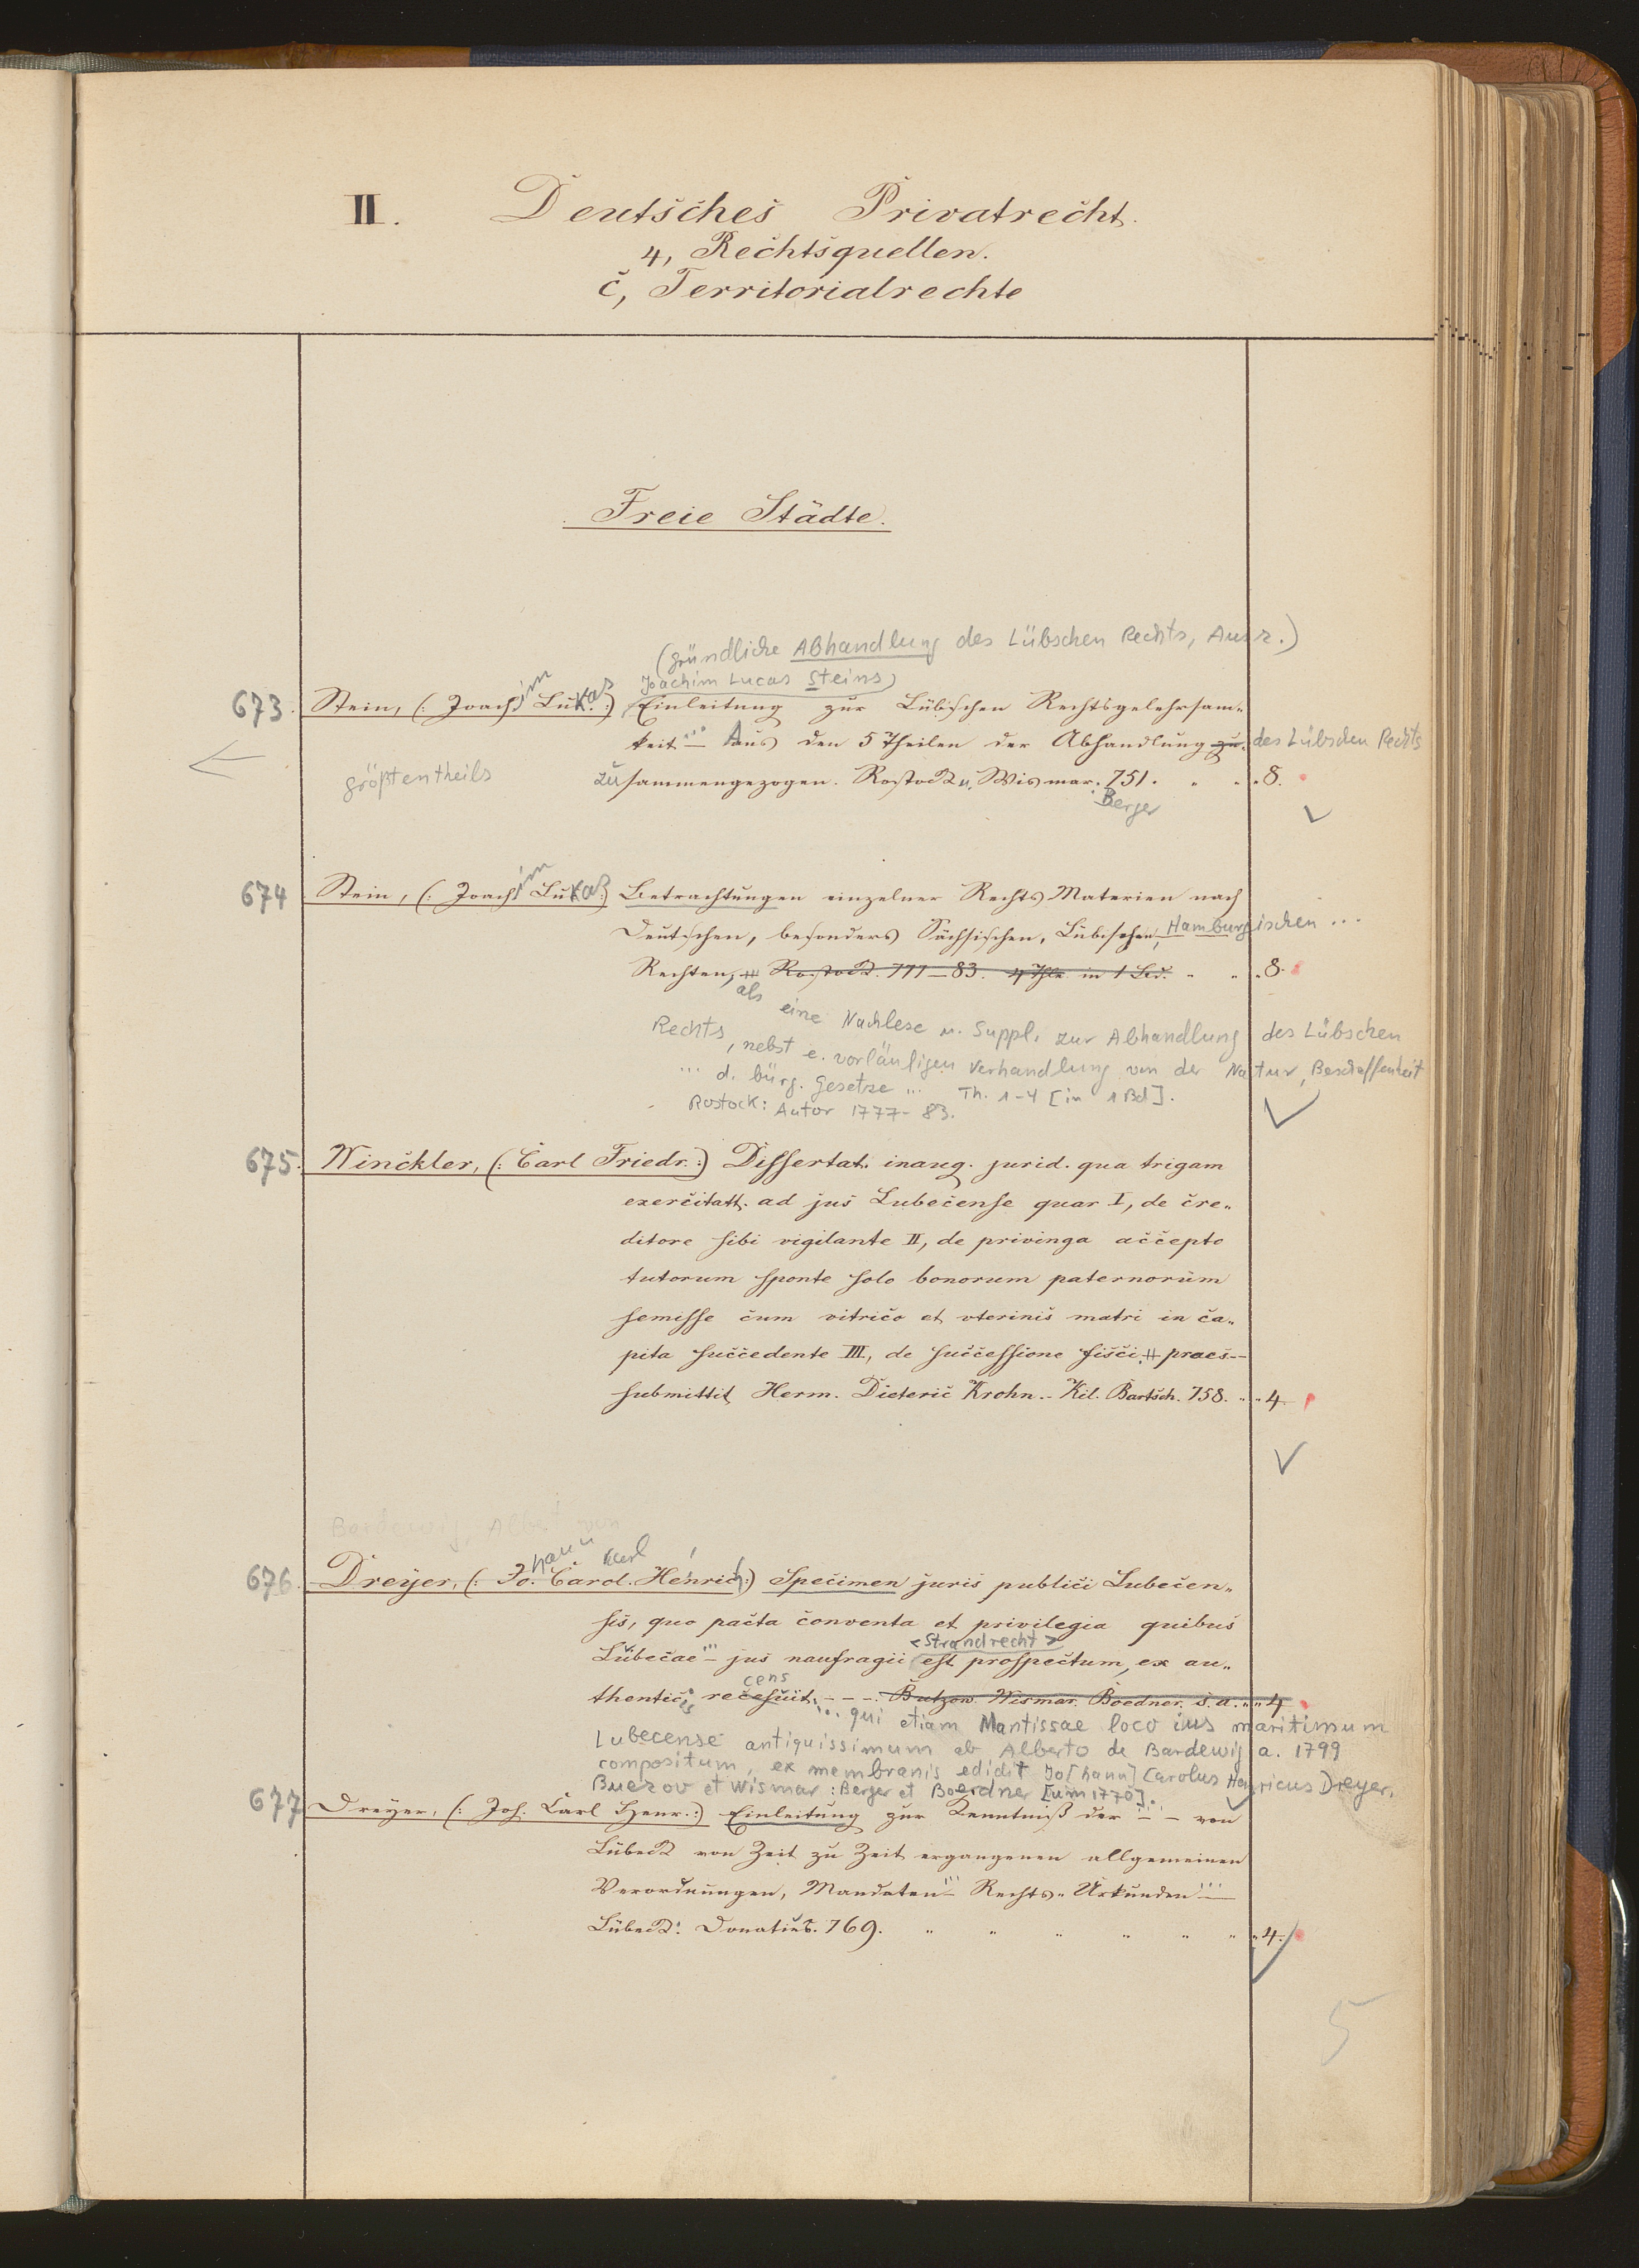 II. Deutsches Privatrecht.
4, Rechtsquellen.
c, Territorialrechte
Freie Städte.
(gründliche Abhandlung des Lübschen Rechts, Ausz.)
Joachim Lucas Steins)
673. Stein, (: Joachim Lukas :) Einleitung zur Lübischen Rechtsgelehrsam-
keit ... Aus den 5 Theilen der Abhandlung zu- des Lübschen Rechts
größtentheils zusammengezogen. Rostock u. Wismar. 751. " " " 8.
Berger
674 Stein, (: Joachim Lukas :) Betrachtungen einzelner Rechts Materien nach
Deutschen, besonders Sächsischen, Lübischen, Hamburgischen ...
Rechten, # Rostock. 777–83. 4 Thle in 1 Bd. " " " 8.
als eine Nachlese u. Suppl. zur Abhandlung des Lübschen
Rechts, nebst e. vorläufigen Verhandlung von der Natur, Beschaffenheit
... d. bürg. Gesetze ... Th. 1-4 [in 1 Bd].
Rostock: Autor 1777-83.
675. Winckler, (: Carl Friedr. :) Dissertat. inaug. jurid. qua trigam
exercitatt. ad jus Lubecense quar I, de cre-
ditore sibi vigilante II, de privinga accepto
tutorum sponte solo bonorum paternorum
semisse cum vitrico et uterinis matri in ca-
pita succedente III, de successione fisci # praes--
submittit Herm. Dieteric Krohn -- Kil. Bartsch. 758. " " 4.
Bardewig, Albert von
676. Dreyer, (: Johann Carol. Karl Henrich :) Specimen juris publici Lubecen-
sis, quo pacta conventa et privilegia quibus
<Strandrecht>
Lubecae ... jus naufragii est prospectum, ex au-
thenticis recensuit. - - - Butzow. Wismar. Boedner. s. a. " " 4.
... qui etiam Mantissae loco ius maritimum
Lubecense antiquissimum ab Alberto de Bardewig a. 1799
compositum, ex membranis edidit Jo[hann] Carolus Henricus Dreyer.
Buezov et Wismar: Berger et Boedner [um 1770].
677 Dreyer, (: Joh. Carl Henr. :) Einleitung zur Kenntniß der ... – von
Lübeck von Zeit zu Zeit ergangenen allgemeinen
Verordnungen, Mandaten ... Rechts-Urkunden ...
Lübeck: Donatius. 769. " " " " " " " 4.
5